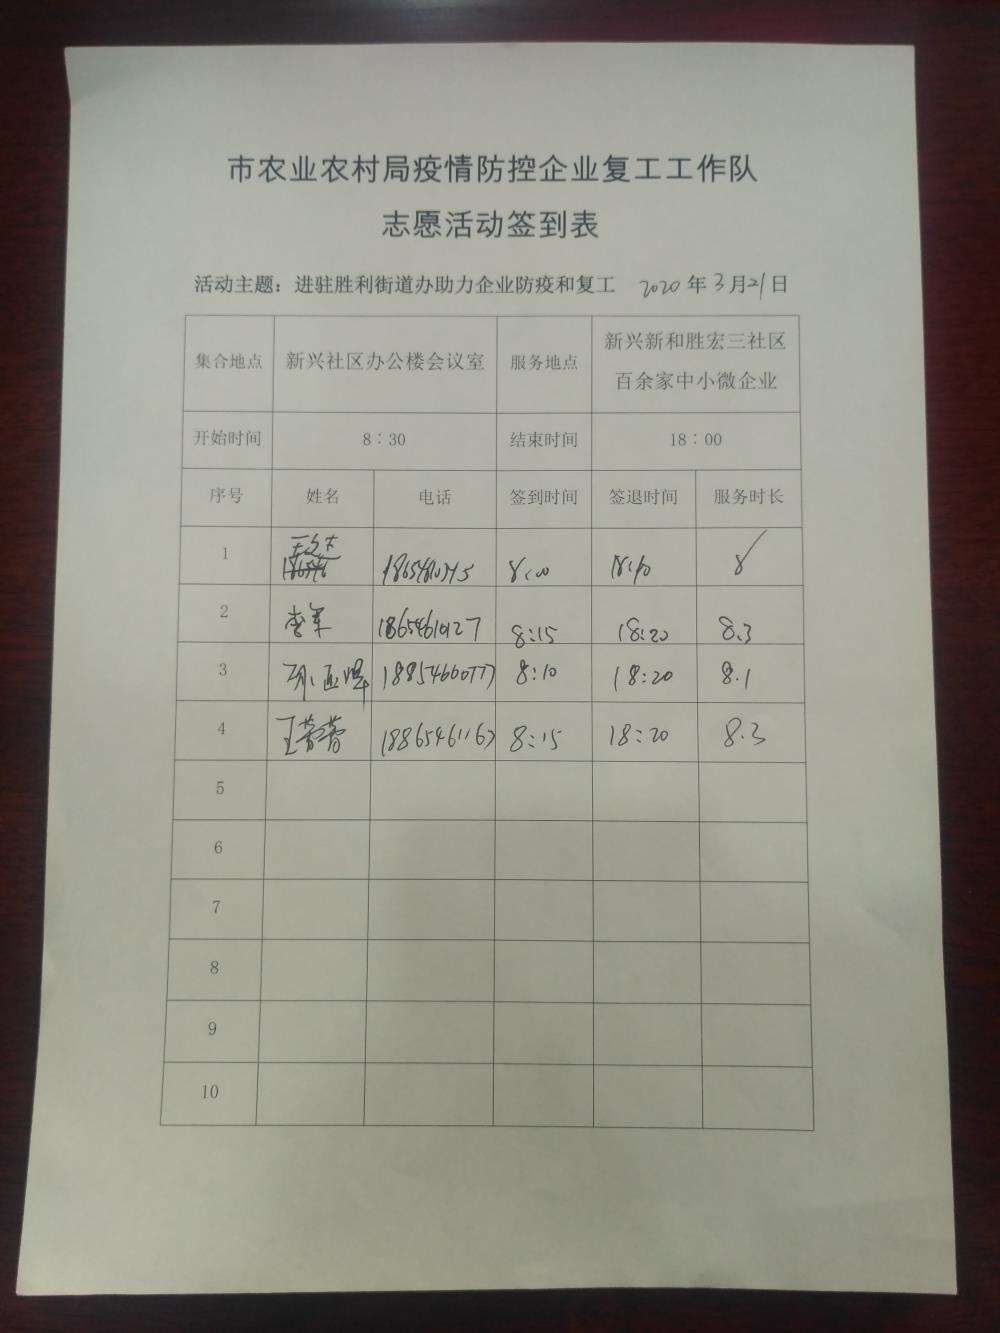 市农业农村局疫情防控企业复工工作队
志愿活动签到表
活动主题：进驻胜利街道办助力企业防疫和复工 2020年3月21日
集合地点 新兴社区办公楼会议室 服务地点 新兴新和胜宏三社区
百余家中小微企业
开始时间 8：30 结束时间 18：00
序号 姓名 电话 签到时间 签退时间 服务时长
1 8:00 18:10 8
2 李军 18654610127 8:15 18:20 8.3
3 18854660777 8:10 18:20 8.1
4 王蓉蓉 8:15 18:20 8.3
5
6
7
8
9
10